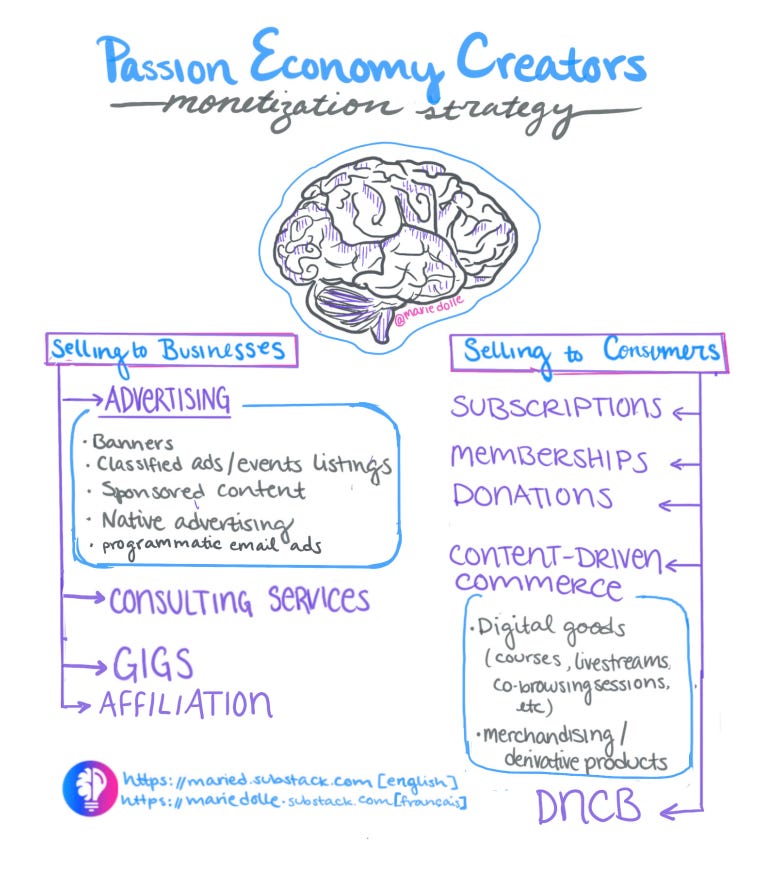 Passion Economy Creators
monetization strategy
@mariedolle
Selling to Businesses
ADVERTISING
· Banners
· Classified ads/events listings
· Sponsored content
· Native advertising
· programmatic email ads
CONSULTING SERVICES
GIGS
AFFILIATION
Selling to Consumers
SUBSCRIPTIONS
MEMBERSHIPS
DONATIONS
CONTENT-DRIVEN
COMMERCE
· Digital goods
(courses, livestreams,
co-browsing sessions,
etc)
· merchandising/
derivative products
DNCB
https://maried.substack.com [english]
https://mariedolle.substack.com [français]